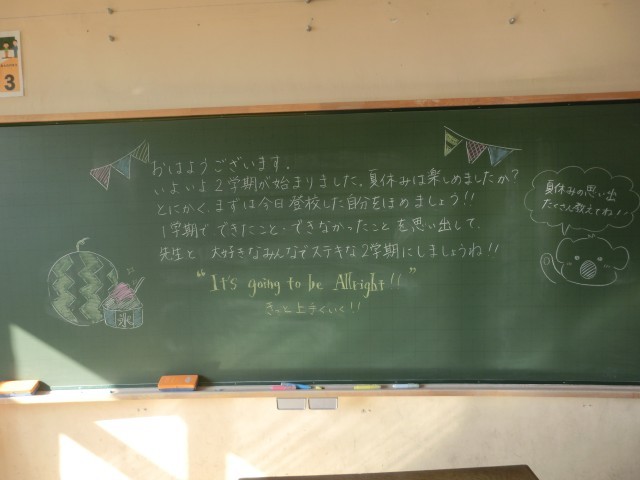 3
おはようございます。
いよいよ2学期が始まりました。夏休みは楽しめましたか?
とにかく、まずは今日登校した自分をほめましょう!!
1学期でできたこと・できなかったことを思い出して、
先生と大好きなみんなでステキな2学期にしましょうね!!
"It's going to be Allright!!"
きっと上手くいく!!
夏休みの思い出
たくさん教えてね!!
氷